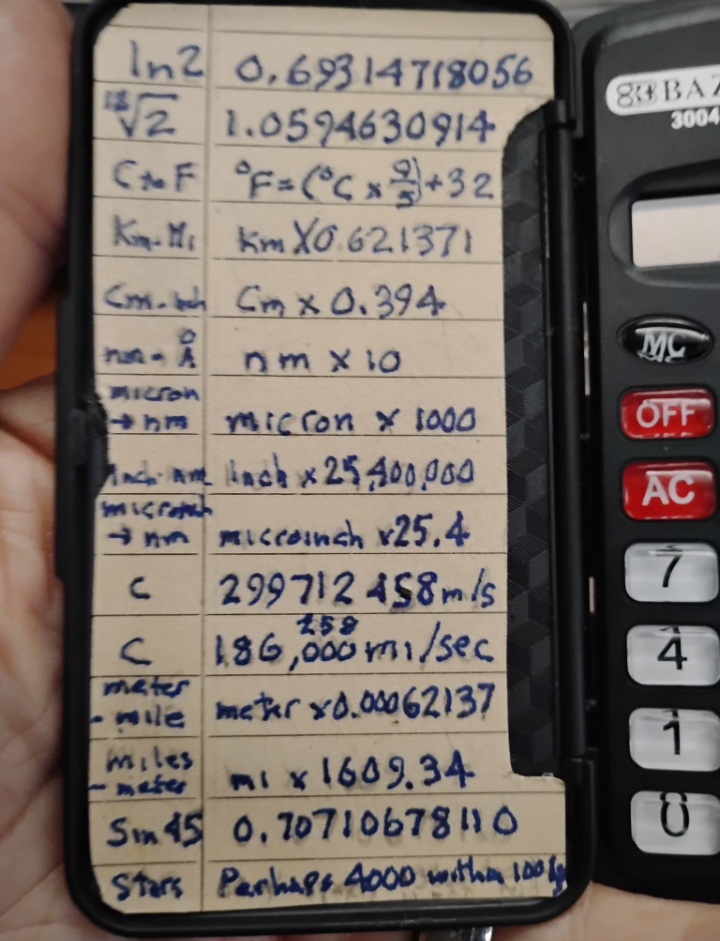 ln2 0.69314718056
12√2 1.0594630914
C to F °F = (°C x 9/5) + 32
Km-Mi km X 0.621371
Cm-inch Cm x 0.394
nm - Å nm x 10
micron → nm micron x 1000
Inch-nm Inch x 25,400,000
microinch → nm microinch x 25.4
C 299712 458 m/s
258
C 186,000 mi/sec
meter - mile meter x 0.00062137
miles - meter mi x 1609.34
Sin 45 0.70710678110
Stars Perhaps 4000 within 100 ly
3004
MC
OFF
AC
7
4
1
0